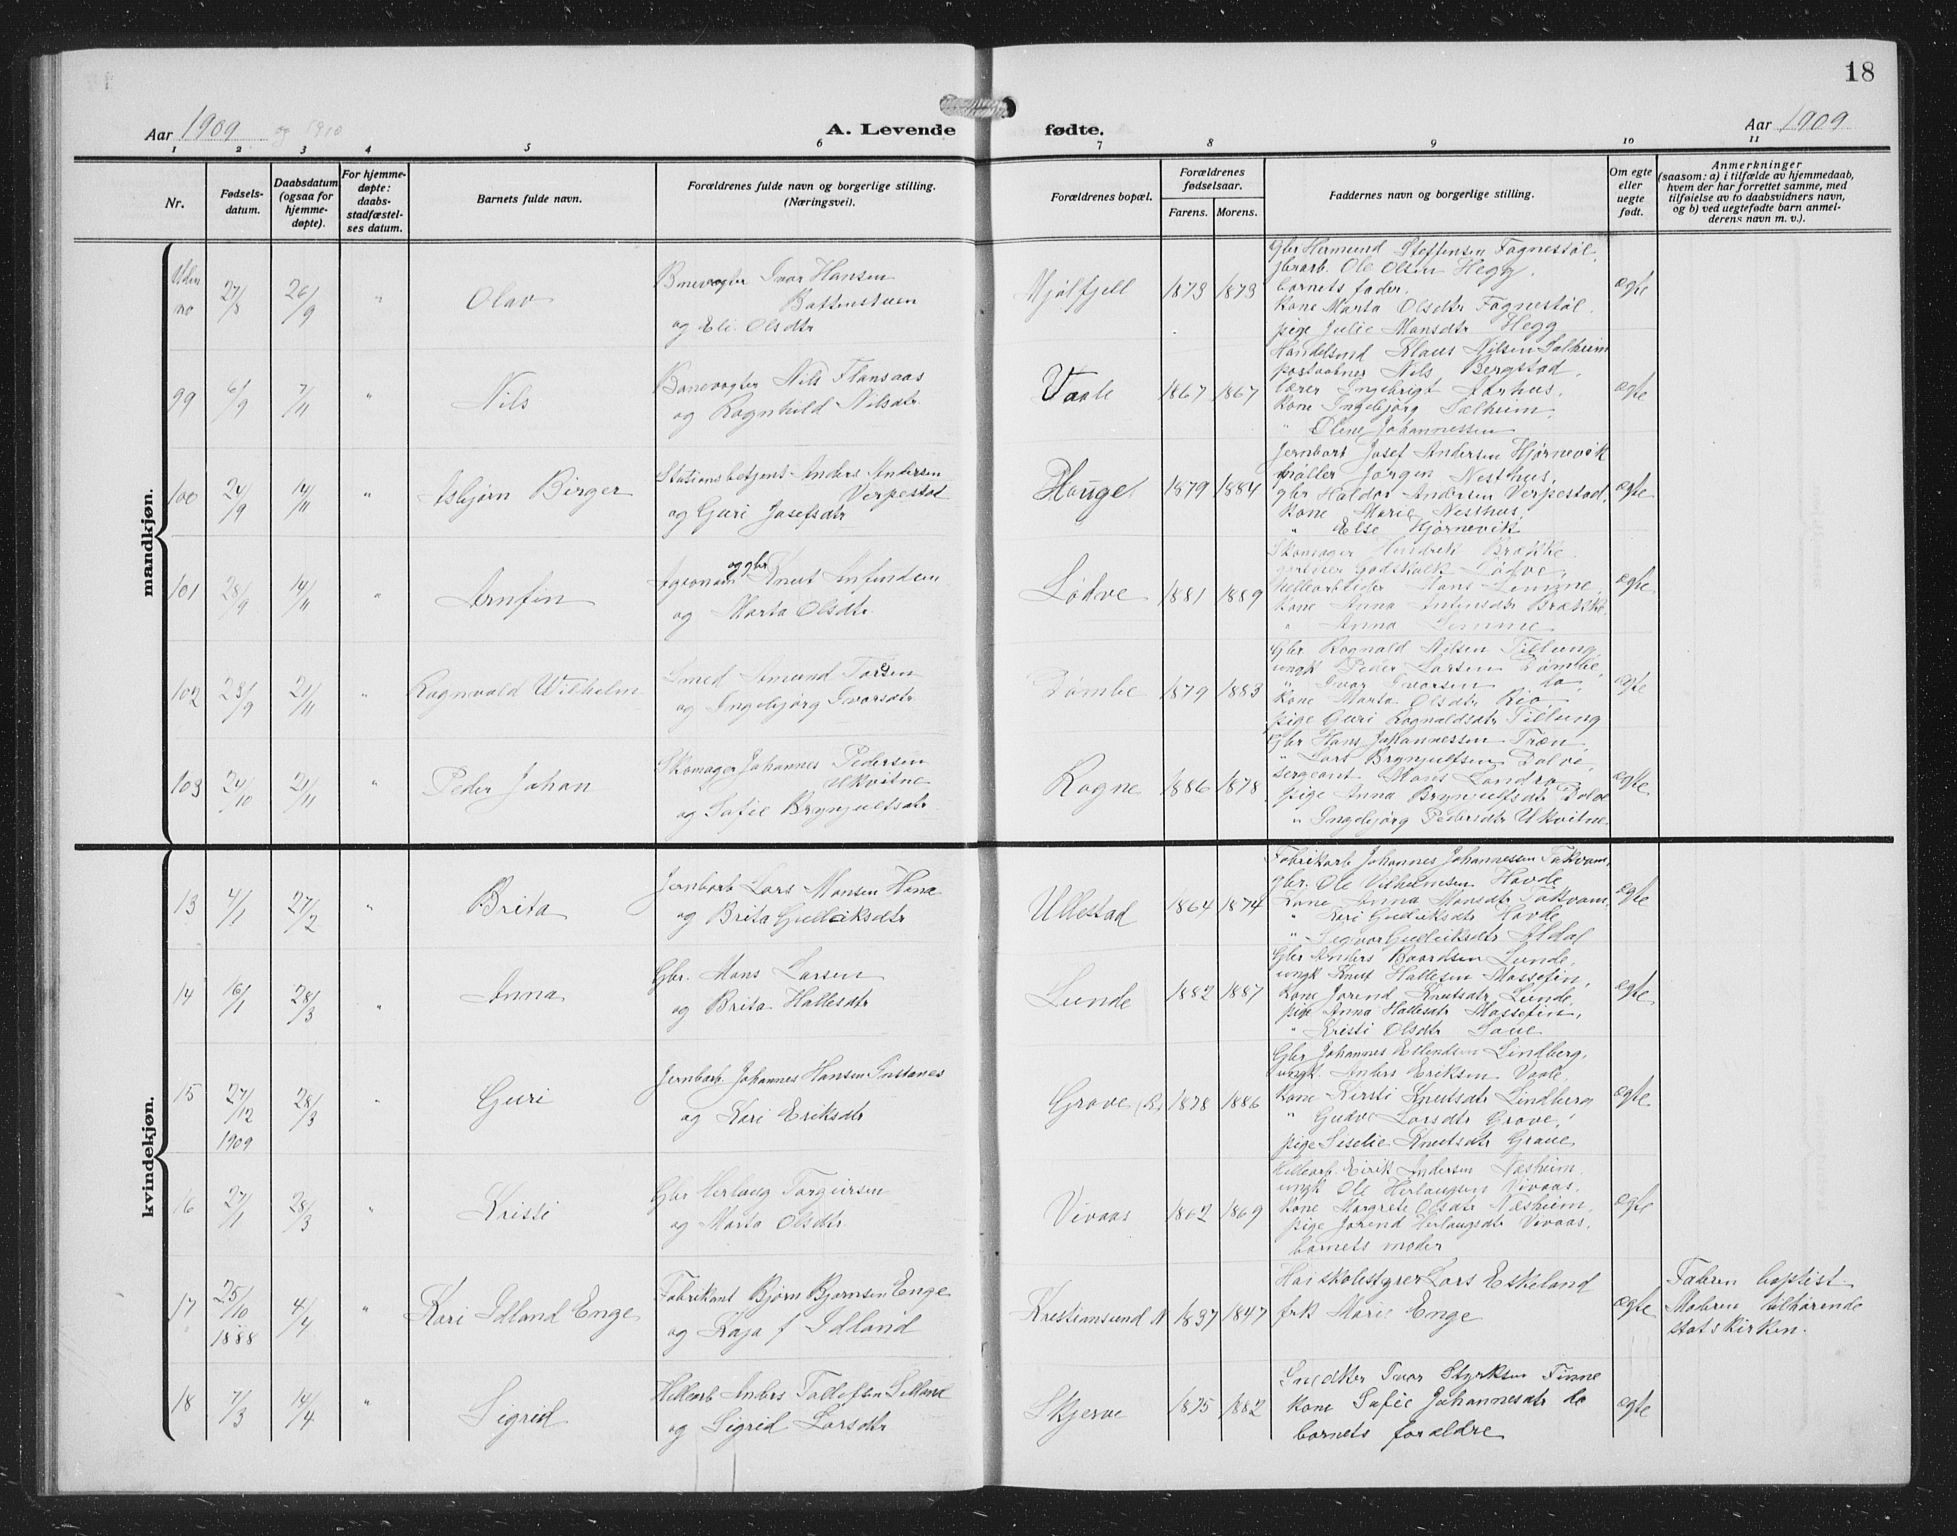 18
Aar 1909 og 1910
A. Levende fødte.
Aar 1909
1 2 3 4 5 6 7 8 9 10 11
Nr.
Fødsels-
datum.
Daabsdatum
(ogsaa for
hjemme-
døpte).
For hjemme-
døpte:
daabs-
stadfæstel-
ses datum.
Barnets fulde navn.
Forældrenes fulde navn og borgerlige stilling.
(Næringsvei).
Forældrenes bopæl.
Forældrenes
fødselsaar.
Farens. Morens.
Faddernes navn og borgerlige stilling.
Om egte
eller
uegte
født.
Anmerkninger
(saasom: a) i tilfælde av hjemmedaab,
hvem der har forrettet samme, med
tilføielse av to daabsvidners navn,
og b) ved uegtefødte barn anmel-
derens navn m. v.).
mandkjøn.
Uden
no
27/8 26/9 " Olav
Banevogter Ivar Hansen
og Eli Olsdtr
Mjølfjell 1873 1873
Gbr Hermund Steffensen Fagnestøl,
jbrarb. Ole Olsen Hegg.
barnets fader.
Kone Marta Olsdtr Fagnestøl.
pige Julie Monsdtr Hegg
egte
99 6/9 7/11 " Nils
Banevogter Nils Flansaas
og Ragnhild Nilsdtr
Vaale 1867 1867
Handelsmd Klaus Nilsen Sælheim
postaabner Nils Bergstad.
lærer Ingebrigt Aarhus.
Kone Ingebjørg Sælheim.
" Oline Johannessen
egte
100 24/9 14/11 " Asbjørn Birger
Stationsbetjent Anders Andersen
Verpestad
og Guri Josefsdtr
Hauge 1879 1884
Jernbarb Josef Andersen Hjørnevik
møller Jørgen Nesthus,
gbr Haldor Andersen Verpestad.
Kone Marie Nesthus,
" Else Hjørnevik
egte
101 28/9 14/11 " Arnfin
og gbr
Agronom Knut Anfindsen
og Marta Olsdtr
Lødve 1881 1889
Skomager Hendrik Brække
gartner Godskalk Lødve,
Hellearbeider Hans Lemme,
Kone Anna Antensdtr Brække,
" Anna Lemme
egte
102 23/9 21/11 " Ragnvald Wilhelm
Smed Amund Torsen
og Ingebjørg Ivarsdtr
Dømbe 1879 1883
Gbr Ragnald Nilsen Tillung,
ungk Peder Larsen Dømbe,
" Ivar Ivarsen do,
Kone Marta Olsdtr Rio,
pige Guri Ragnaldsdtr Tillung
egte
103 24/10 21/11 " Peder Johan
Skomager Johannes Pedersen
Ukvitne
og Sofie Brynjulfsdtr
Rogne 1886 1878
Gbr Hans Johannessen Træn,
" Lars Brynjulfsen Dolve,
sergeant Mons Landro
pige Anna Brynjulfsdtr Dolve
" Ingebjørg Pedersdtr Ukvitne
egte
kvindekjøn.
13 4/1 27/2 " Brita
Jernbarb Lars Monsen Henæ
og Brita Gulleiksdtr
Ullestad 1864 1874
Fabrikarb Johannes Johannessen Takvam,
gbr. Ole Vilhelmsen Hovde
Kone Anna Monsdtr Takvam,
" Kari Gulleiksdtr Hovde
" Sigvor Gulleiksdtr Afdal
egte
14 16/1 28/3 " Anna
Gbr. Mons Larsen
og Brita Hallesdtr
Lunde 1882 1887
Gbr Anders Baardsen Lunde,
ungk Knut Hallesen Massefin,
Kone Jorend Knutsdtr Lunde,
pige Anna Hallesdtr Massefin,
" Kristi Olsdtr Saue
egte
15 27/12 28/3 " Guri
1909
Jernbarb. Johannes Hansen Instanes
og Kari Eriksdtr
Grove (R) 1878 1886
Gbr Johannes Ellendsen Lindberg,
ungk. Anders Eriksen Vaale,
Kone Kirsti Knutsdtr Lindberg
" Gudve Larsdtr Grove,
pige Seselie Knutsdtr Graue
egte
16 27/1 28/3 " Kristi
Gbr Herlaug Torgiersen
og Marta Olsdtr
Vivaas 1862 1869
Hellearb. Eirik Andersen Næsheim,
ungk Ole Herlaugsen Vivaas.
Kone Margrete Olsdtr Næsheim,
pige Jorend Herlaugsdtr Vivaas,
barnets moder
egte
17 25/10 4/4 " Kari Idland Enge
1888
Fabrikant Bjørn Bjørnsen Enge
og Kaja f Idland
Kristiansund N 1837 1847
Høiskolestyrer Lars Eskeland
frk Marie Enge
egte
Faderen baptist
Moderen tilhørende
statskirken.
18 7/3 14/4 " Sigrid
Hellearb Anders Tollefsen Selland
og Sigrid Larsdtr
Skjerve 1875 1882
Snedker Ivar Styrksen Finne
Kone Sofie Johannesdtr do
barnets forældre
egte